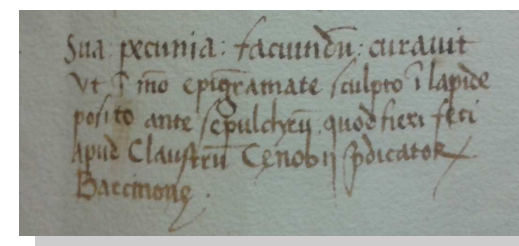 Sua pecunia: facuindũ: curauit
Vt ĩ mõ epigramate sculpto ĩ lapide
posito ante sepulchrũ quod fieri feci
Apud Claustrũ Cęnobij pdicatoꝝ
Barcinonę.